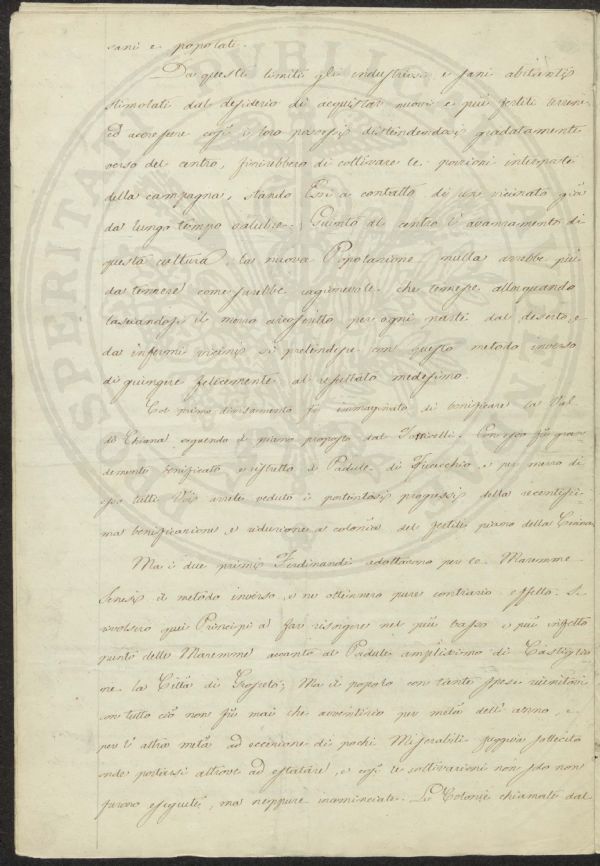 sani e popolati.
Da questi limiti gli industriosi e sani abitanti
stimolati dal desiderio di acquistar nuovi e più fertili terreni
ed accrescere così i loro possessi distendendosi gradatamente
verso del centro, finirebbero di coltivare le porzioni interposte
della campagna, stando Essi a contatto di un vicinato già
da lungo tempo salubre. Giunto al centro l'avanzamento di
questa cultura, la nuova Popolazione nulla avrebbe più
da temere come sarebbe ragionevole che temesse allorquando
lasciandosi il mezzo circoscritto per ogni parti dal deserto, e
da infermi vicini si pretendesse con questo metodo inverso
di giungere felicemente al resultato medesimo.
Col primo divisamento fu immaginato di bonificare la Val
di Chiana seguendo il piano proposto dal Torricelli. Con esso fu gran-
demente bonificato e ristretto il Padule di Fucecchio, e per mezzo di
esso tutti Voi avrete veduto i portentosi progressi della recentissi-
ma bonificazione, e riduzione a colonia del fertile piano della Chiana
Ma i due primi Ferdinandi adottarono per le Maremme
Senesi il metodo inverso, e ne ottennero pure contrario effetto. Si
rivolsero quei Principi a far risorgere nel più basso e più infetto
punto delle Maremme accanto al Padule amplissimo di Castiglio
ne la Città di Grosseto; Ma il popolo con tante spese riunitovi
con tutto ciò non fu mai che avventizio per metà dell'anno, e
per l'altra metà ad eccezione di pochi Miserabili fuggiva sollecito
onde portarsi altrove ad estatare, e così le coltivazioni non solo non
furono eseguite, ma neppure incominciate. Le Colonie chiamate dal